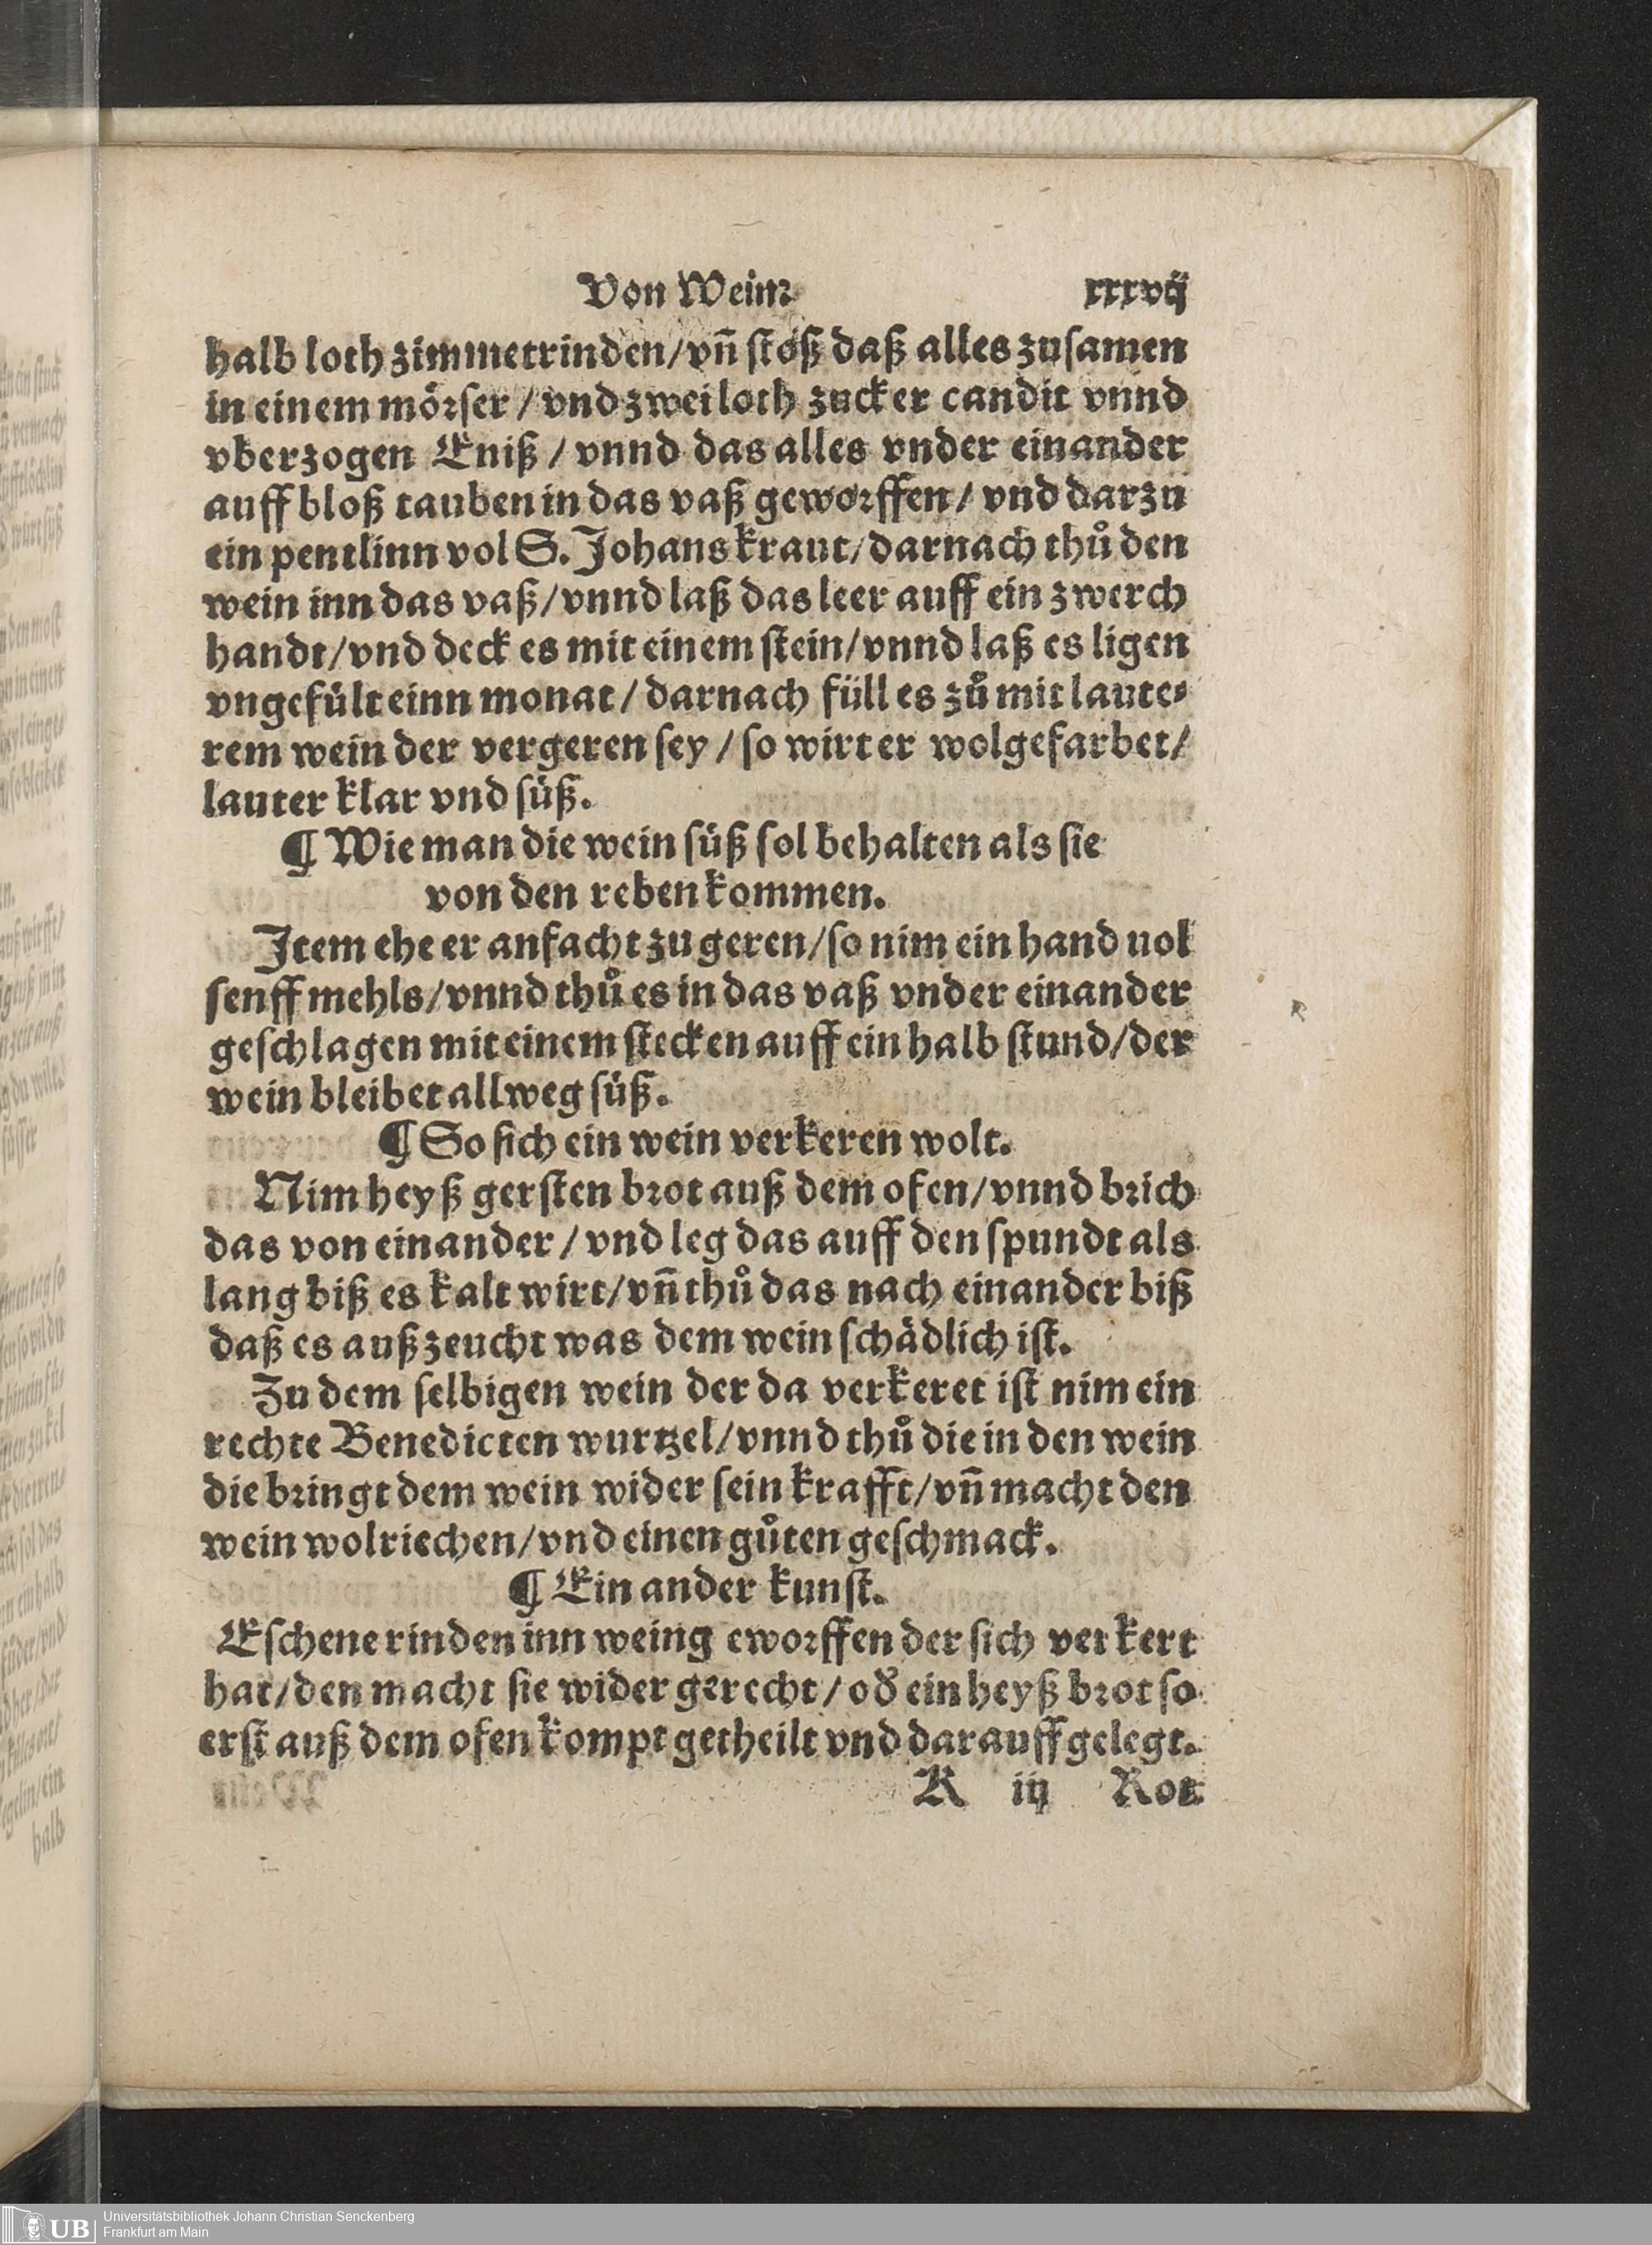 Von Wein. xxxvij
halb loth zimmetrinden/vn̄ ſtöß daß alles zuſamen
in einem mörſer/vnd zwei loth zucker candit vnnd
vberzogen Eniß/vnnd das alles vnder einander
auff bloß tauben in das vaß geworffen/vnd darzu
ein pentlinn vol S. Johans kraut/darnach thů den
wein inn das vaß/vnnd laß das leer auff ein zwerch
handt/vnd deck es mit einem ſtein/vnnd laß es ligen
vngefült einn monat/darnach füll es zů mit laute⸗
rem wein der vergeren ſey/ſo wirt er wolgefarbet/
lauter klar vnd ſüß.
¶ Wie man die wein ſüß ſol behalten als ſie
von den reben kommen.
Item ehe er anfacht zu geren/ſo nim ein hand uol
ſenff mehls/vnnd thů es in das vaß vnder einander
geſchlagen mit einem ſtecken auff ein halb ſtund/der
wein bleibet allweg ſüß.
¶ So ſich ein wein verkeren wolt.
Nim heyß gerſten brot auß dem ofen/vnnd brich
das von einander/vnd leg das auff den ſpundt als
lang biß es kalt wirt/vn̄ thů das nach einander biß
daß es außzeucht was dem wein ſchädlich iſt.
Zu dem ſelbigen wein der da verkeret iſt nim ein
rechte Benedicten wurtzel/vnnd thů die in den wein
die bringt dem wein wider ſein krafft/vn̄ macht den
wein wolriechen/vnd einen gůten geſchmack.
¶ Ein ander kunſt.
Eſchene rinden inn weing eworffen der ſich verkert
hat/den macht ſie wider gerecht/od̕ ein heyß brot ſo
erſt auß dem ofen kompt getheilt vnd darauff gelegt.
K iij Rot
UB Universitätsbibliothek Johann Christian Senckenberg
Frankfurt am Main